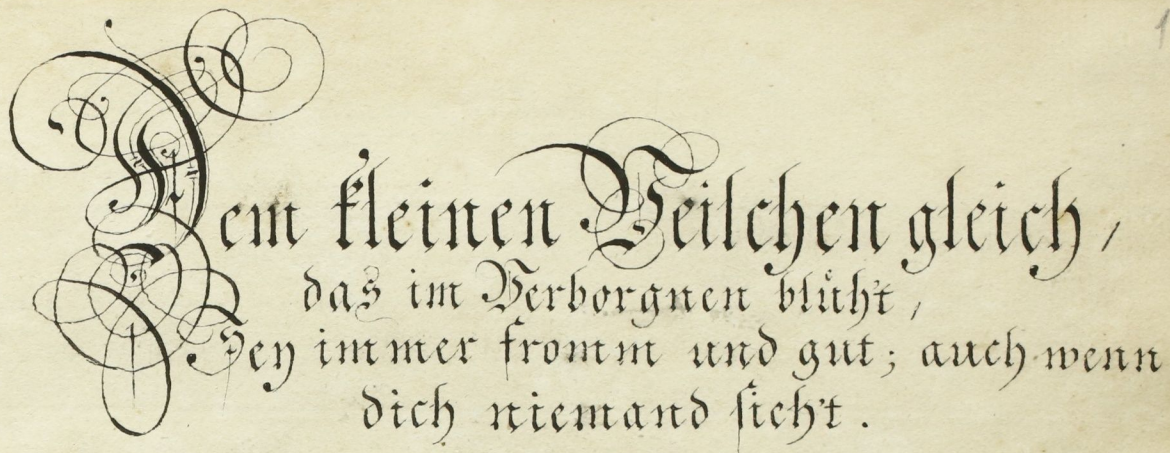 Dem kleinen Veilchen gleich,
das im Verborgnen blüh't,
Sey immer fromm und gut; auch wenn
dich niemand sieh't.